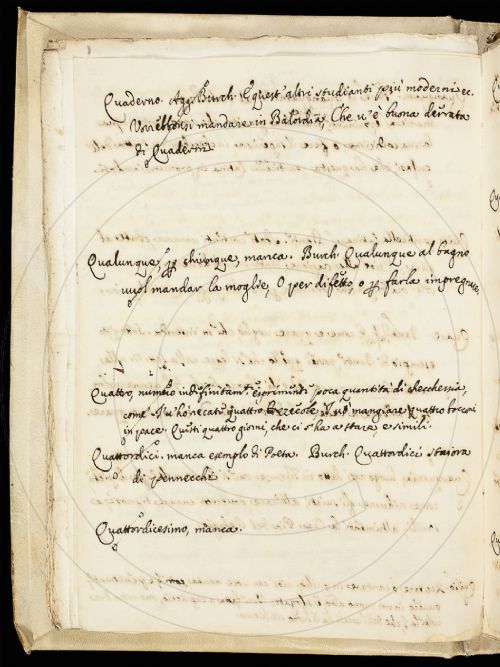 Quaderno. Agg. Burch. E quest' altri studianti più moderni ec.
Vorrebbonsi mandare in Balordia, Che v'è buona derrata
di Quaderni
Qualunque, per chiunque, manca. Burch. Qualunque al bagno
vuol mandar la moglie, O per difetto, o per farla impregnare,
Quattro, numero indefinitam. esprimente poca quantità di checchessia,
come T'ho recato quattro frezecole mangiare quattro bocconi
in pace. Questi quattro giorni, che ci s'ha a stare, e simili.
Quattordici. manca esemplo di Poeta. Burch. Quattordici staiora
di pennecchi
Quattordicesimo, manca.